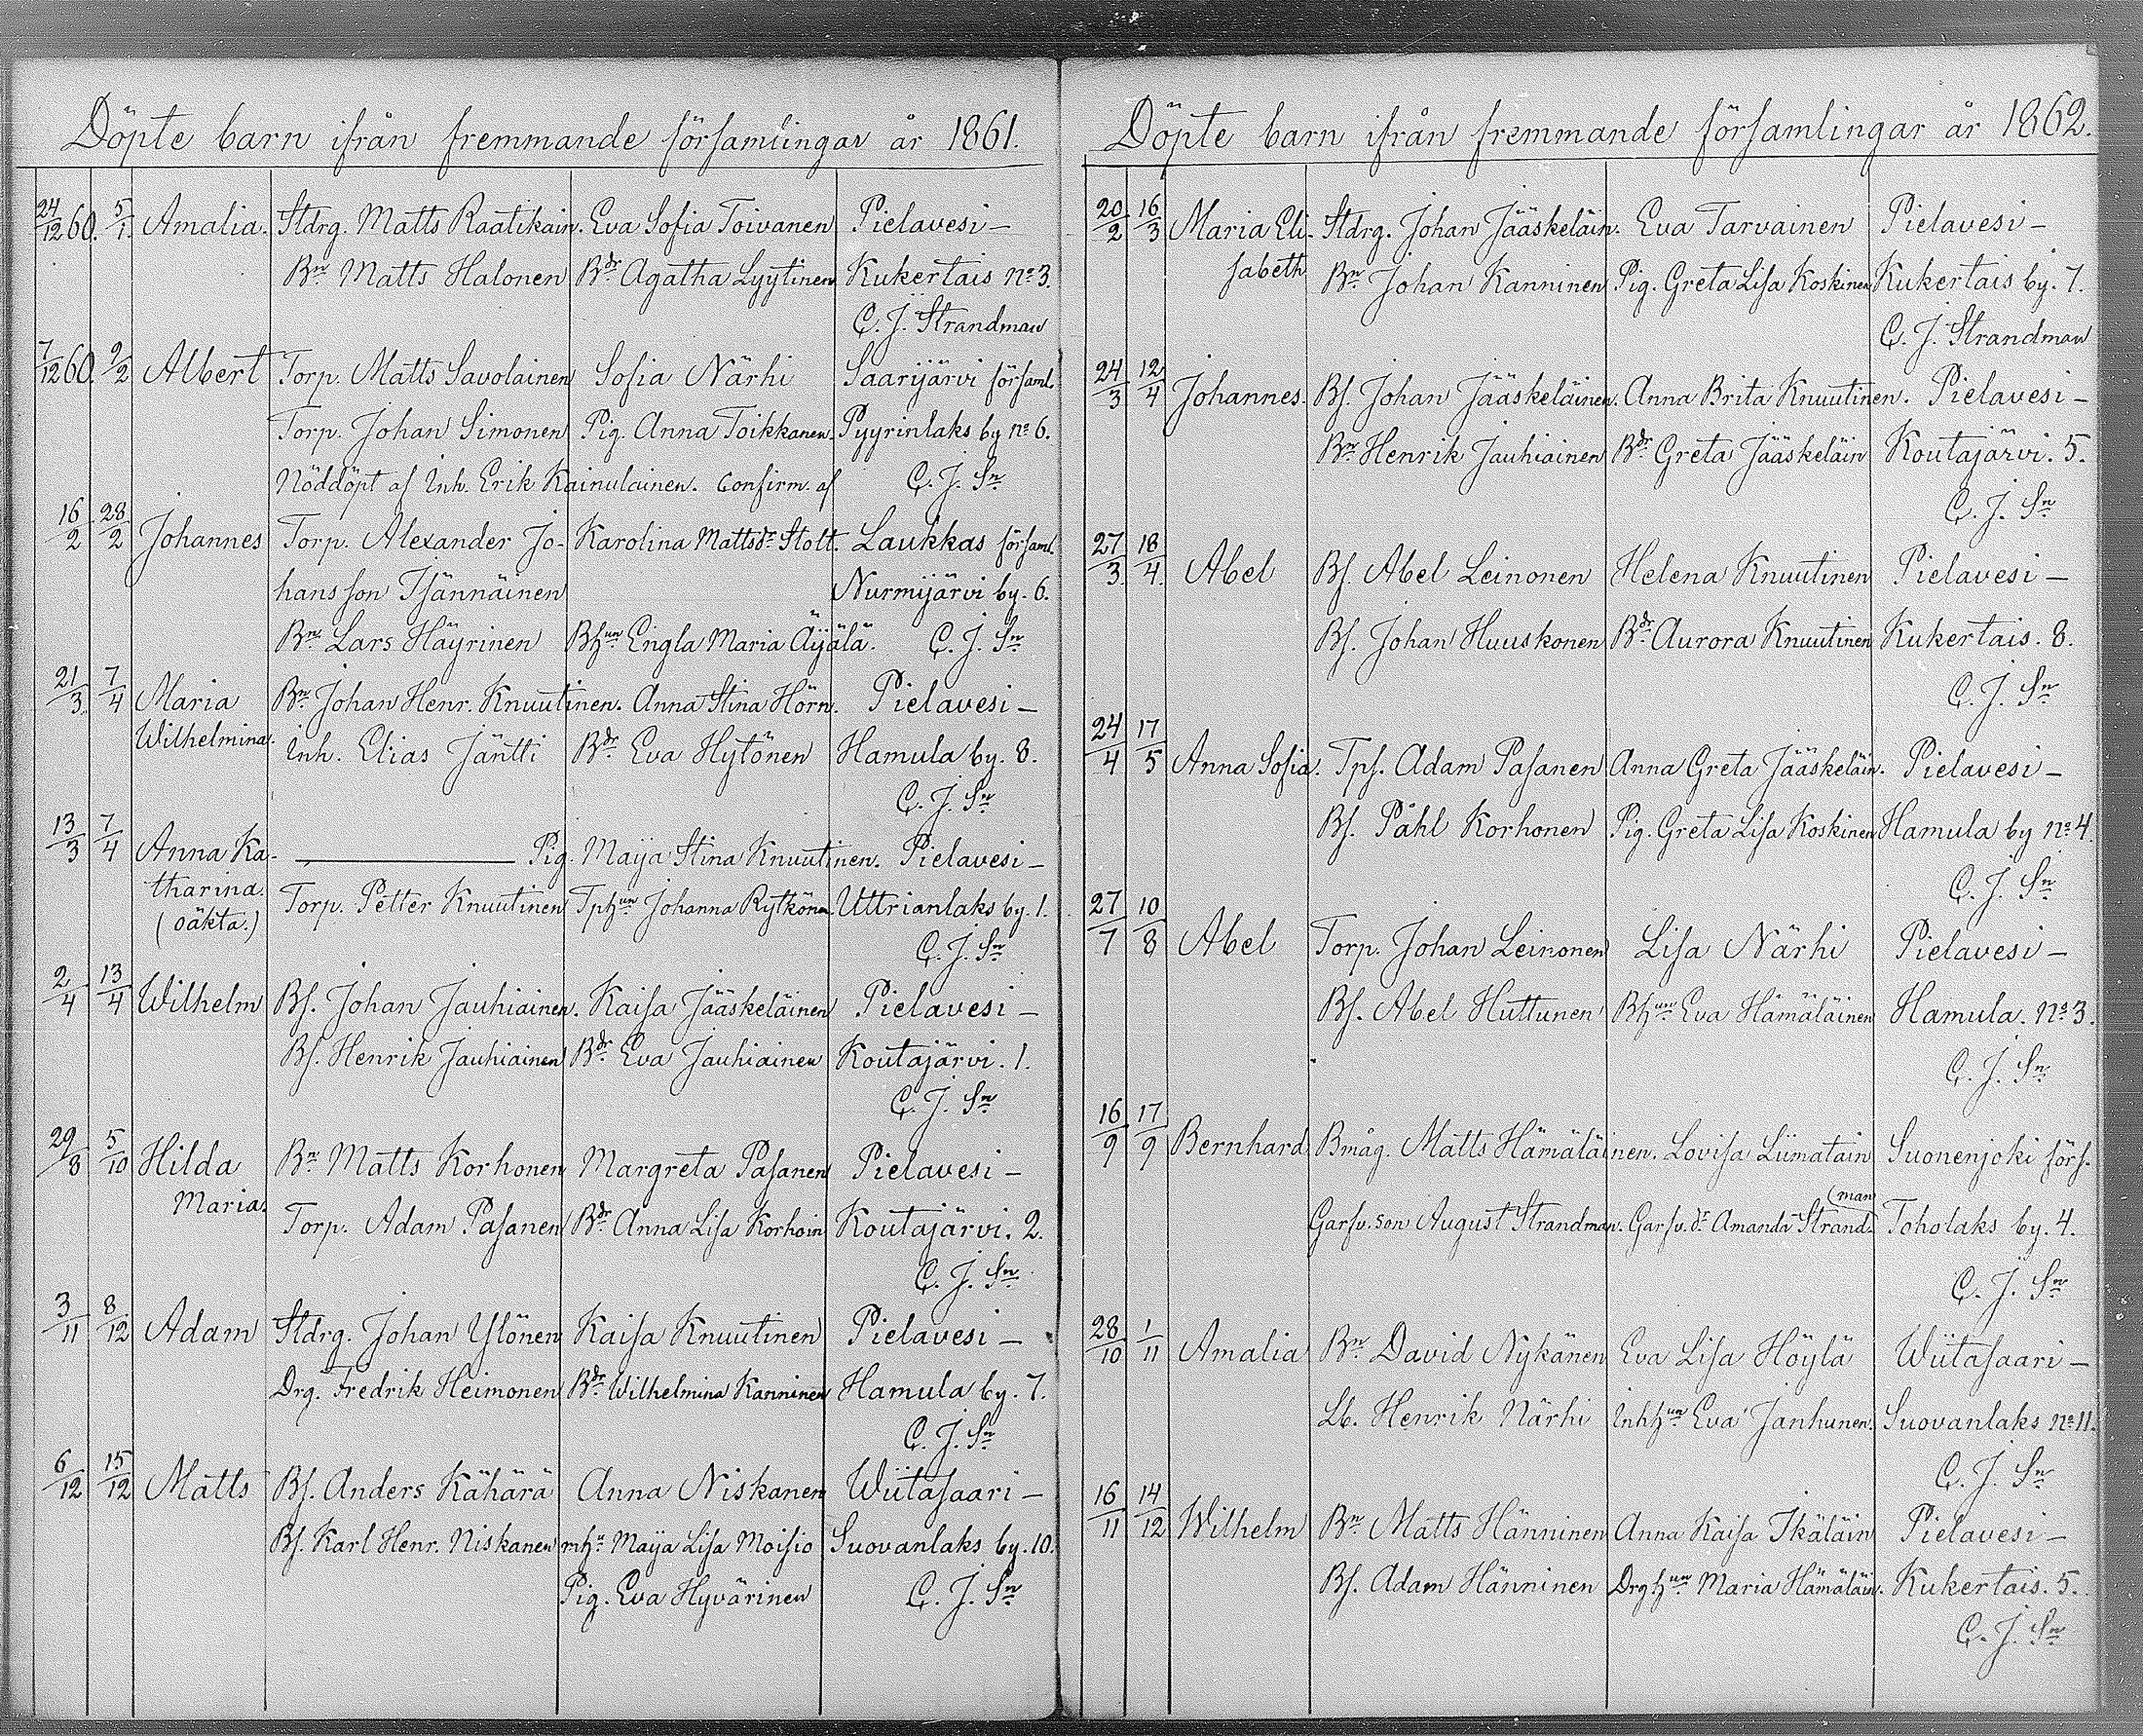 Döpte barn ifrån fremmande församlingar år 1861.
24/12 60. 5/1. Amalia. Stdrg. Matts Raatikain. Eva Sofia Toivanen Pielavesi –
Bn. Matts Halonen Bdr. Agatha Lyytinen Kukertais No 3.
C. J. Strandman
7/12 60. 9/2 Albert Torp. Matts Savolainen Sofia Närhi Saarijärvi församl.
Torp. Johan Simonen Pig. Anna Toikkanen. Pyyrinlaks by No 6.
Nöddöpt af Inh. Erik Kainulainen. Confirm. af C. J. Sn
16/2 28/2 Johannes Torp. Alexander Jo- Karolina Mattsdr Stolt. Laukkas församl.
hansson Tsännäinen Nurmijärvi by. 6.
Bn. Lars Häyrinen Bhun Engla Maria Äijälä. C. J. Sn
21/3. 7/4 Maria Bn. Johan Henr. Knuutinen. Anna Stina Hörn. Pielavesi –
Wilhelmina. Inh. Elias Jäntti Bdr. Eva Hytönen Hamula by. 8.
C. J. Sn
13/3 7/4 Anna Ka- — Pig. Maija Stina Knuutinen. Pielavesi –
tharina. Torp. Petter Knuutinen Tphun Johanna Rytkönen. Uttrianlaks by. 1.
(oäkta.) C. J. Sn
2/4 13/4 Wilhelm Bs. Johan Jauhiainen. Kaisa Jääskeläinen Pielavesi –
Bs. Henrik Jauhiainen Bdr. Eva Jauhiainen Koutajärvi. 1.
C. J. Sn
29/8 5/10 Hilda Bn. Matts Korhonen Margreta Pasanen Pielavesi –
Maria. Torp. Adam Pasanen Bdr. Anna Lisa Korhoin Koutajärvi. 2.
C. J. Sn
3/11 8/12 Adam Stdrg. Johan Ylönen Kaisa Knuutinen Pielavesi –
Drg. Fredrik Heimonen Bdr. Wilhelmina Kanninen Hamula by. 7.
C. J. Sn
6/12 15/12 Matts Bs. Anders Kähärä Anna Niskanen Wiitasaari –
Bs. Karl Henr. Niskanen mhn Maija Lisa Moisio Suovanlaks by. 10.
Pig. Eva Hyvärinen C. J. Sn
Döpte barn ifrån fremmande församlingar år 1862.
20/2 16/3 Maria Eli- Stdrg. Johan Jääskeläin. Eva Tarvainen Pielavesi –
sabeth Bn. Johan Kanninen Pig. Greta Lisa Koskinen Kukertais by. 7.
C. J. Strandman
24/3 12/4 Johannes. Bs. Johan Jääskeläinen. Anna Brita Knuutinen. Pielavesi –
Bn. Henrik Jauhiainen Bdr. Greta Jääskeläin Koutajärvi. 5.
C. J. Sn
27/3. 18/4. Abel Bs. Abel Leinonen Helena Knuutinen Pielavesi –
Bs. Johan Huuskonen Bdr. Aurora Knuutinen Kukertais. 8.
C. J. Sn
24/4 17/5 Anna Sofia. Tps. Adam Pasanen Anna Greta Jääskeläin. Pielavesi –
Bs. Påhl Korhonen Pig. Greta Lisa Koskinen Hamula by No 4.
C. J. Sn
27/7 10/8 Abel Torp. Johan Leinonen Lisa Närhi Pielavesi –
Bs. Abel Huttunen Bhun Eva Hämäläinen Hamula. No 3.
C. J. Sn
16/9 17/9 Bernhard Bmåg. Matts Hämäläinen. Lovisa Liimatain Suonenjoki förs.
(man
Garfv. son August Strandman. Garfv. dr Amanda Strand- Toholaks by. 4.
C. J. Sn
28/10 1/11 Amalia Bn. David Nykänen Eva Lisa Höylä Wiitasaari –
Lb. Henrik Närhi Inhhun Eva Janhunen. Suovanlaks No 11.
C. J. Sn
16/11 14/12 Wilhelm Bn. Matts Hänninen Anna Kaisa Ikäläin Pielavesi –
Bs. Adam Hänninen Drghun Maria Hämäläin. Kukertais. 5.
C. J. Sn